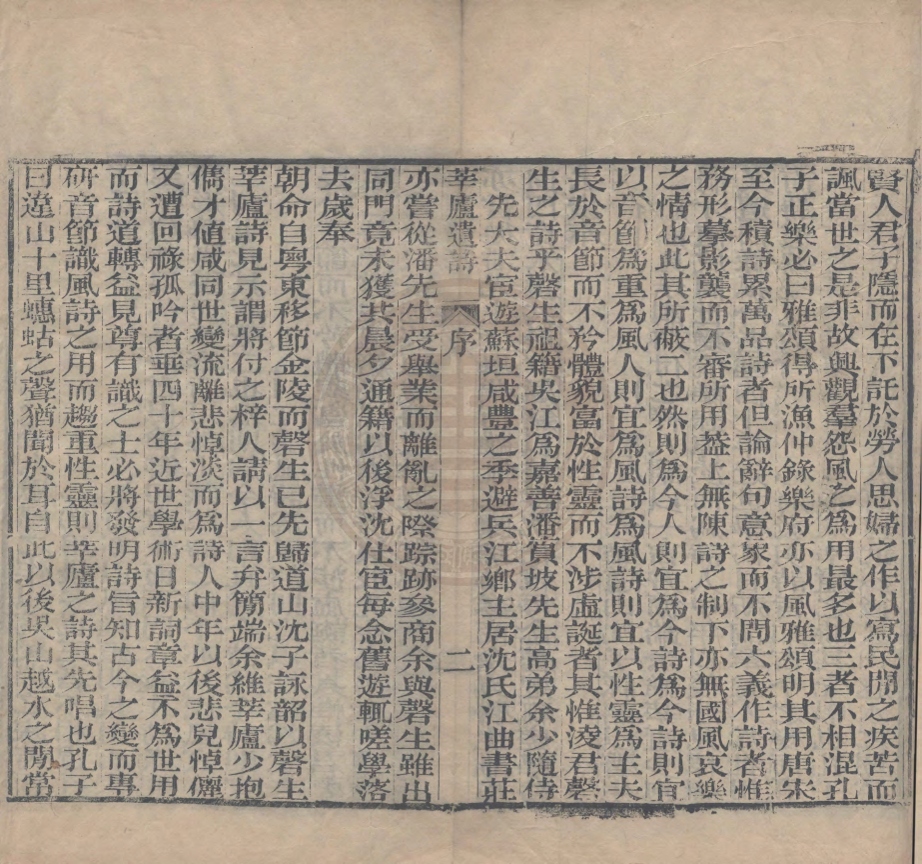 賢人君子隱而在下託於勞人思婦之作以寫民間之疾苦而
諷當世之是非故興觀羣怨風之為用最多也三者不相混孔
子正樂必曰雅頌得所漁仲錄樂府亦以風雅頌明其用唐宋
至今積詩累萬品詩者但論辭句意象而不問六義作詩者惟
務形摹影襲而不審所用葢上無陳詩之制下亦無國風哀樂
之情也此其所蔽二也然則為今人則宜為今詩為今詩則宜
以音節為重為風人則宜為風詩為風詩則宜以性靈為主夫
長於音節而不矜體貌富於性靈而不涉虛誕者其惟淩君磬
生之詩乎磬生祖籍吳江為嘉善潘簣坡先生高弟余少隨侍
先大夫宦遊蘇垣咸豐之季避兵江鄉主居沈氏江曲書莊
莘廬遺詩 序 二
亦嘗從潘先生受舉業而離亂之際踪跡參商余與磬生雖出
同門竟未獲共晨夕通籍以後浮沈仕宦每念舊遊輒嗟學落
去歲奉
朝命自粵東移節金陵而磬生已先歸道山沈子詠韶以磬生
莘廬詩見示謂將付之梓人請以一言弁簡端余維莘廬少抱
儁才值咸同世變流離悲悼淡而為詩人中年以後悲兒悼儷
又遭回祿孤吟者垂四十年近世學術日新詞章益不為世用
而詩道轉益見尊有識之士必將發明詩旨知古今之變而專
研音節識風詩之用而趨重性靈則莘廬之詩其先唱也孔子
曰違山十里蟪蛄之聲猶聞於耳自此以後吳山越水之間當